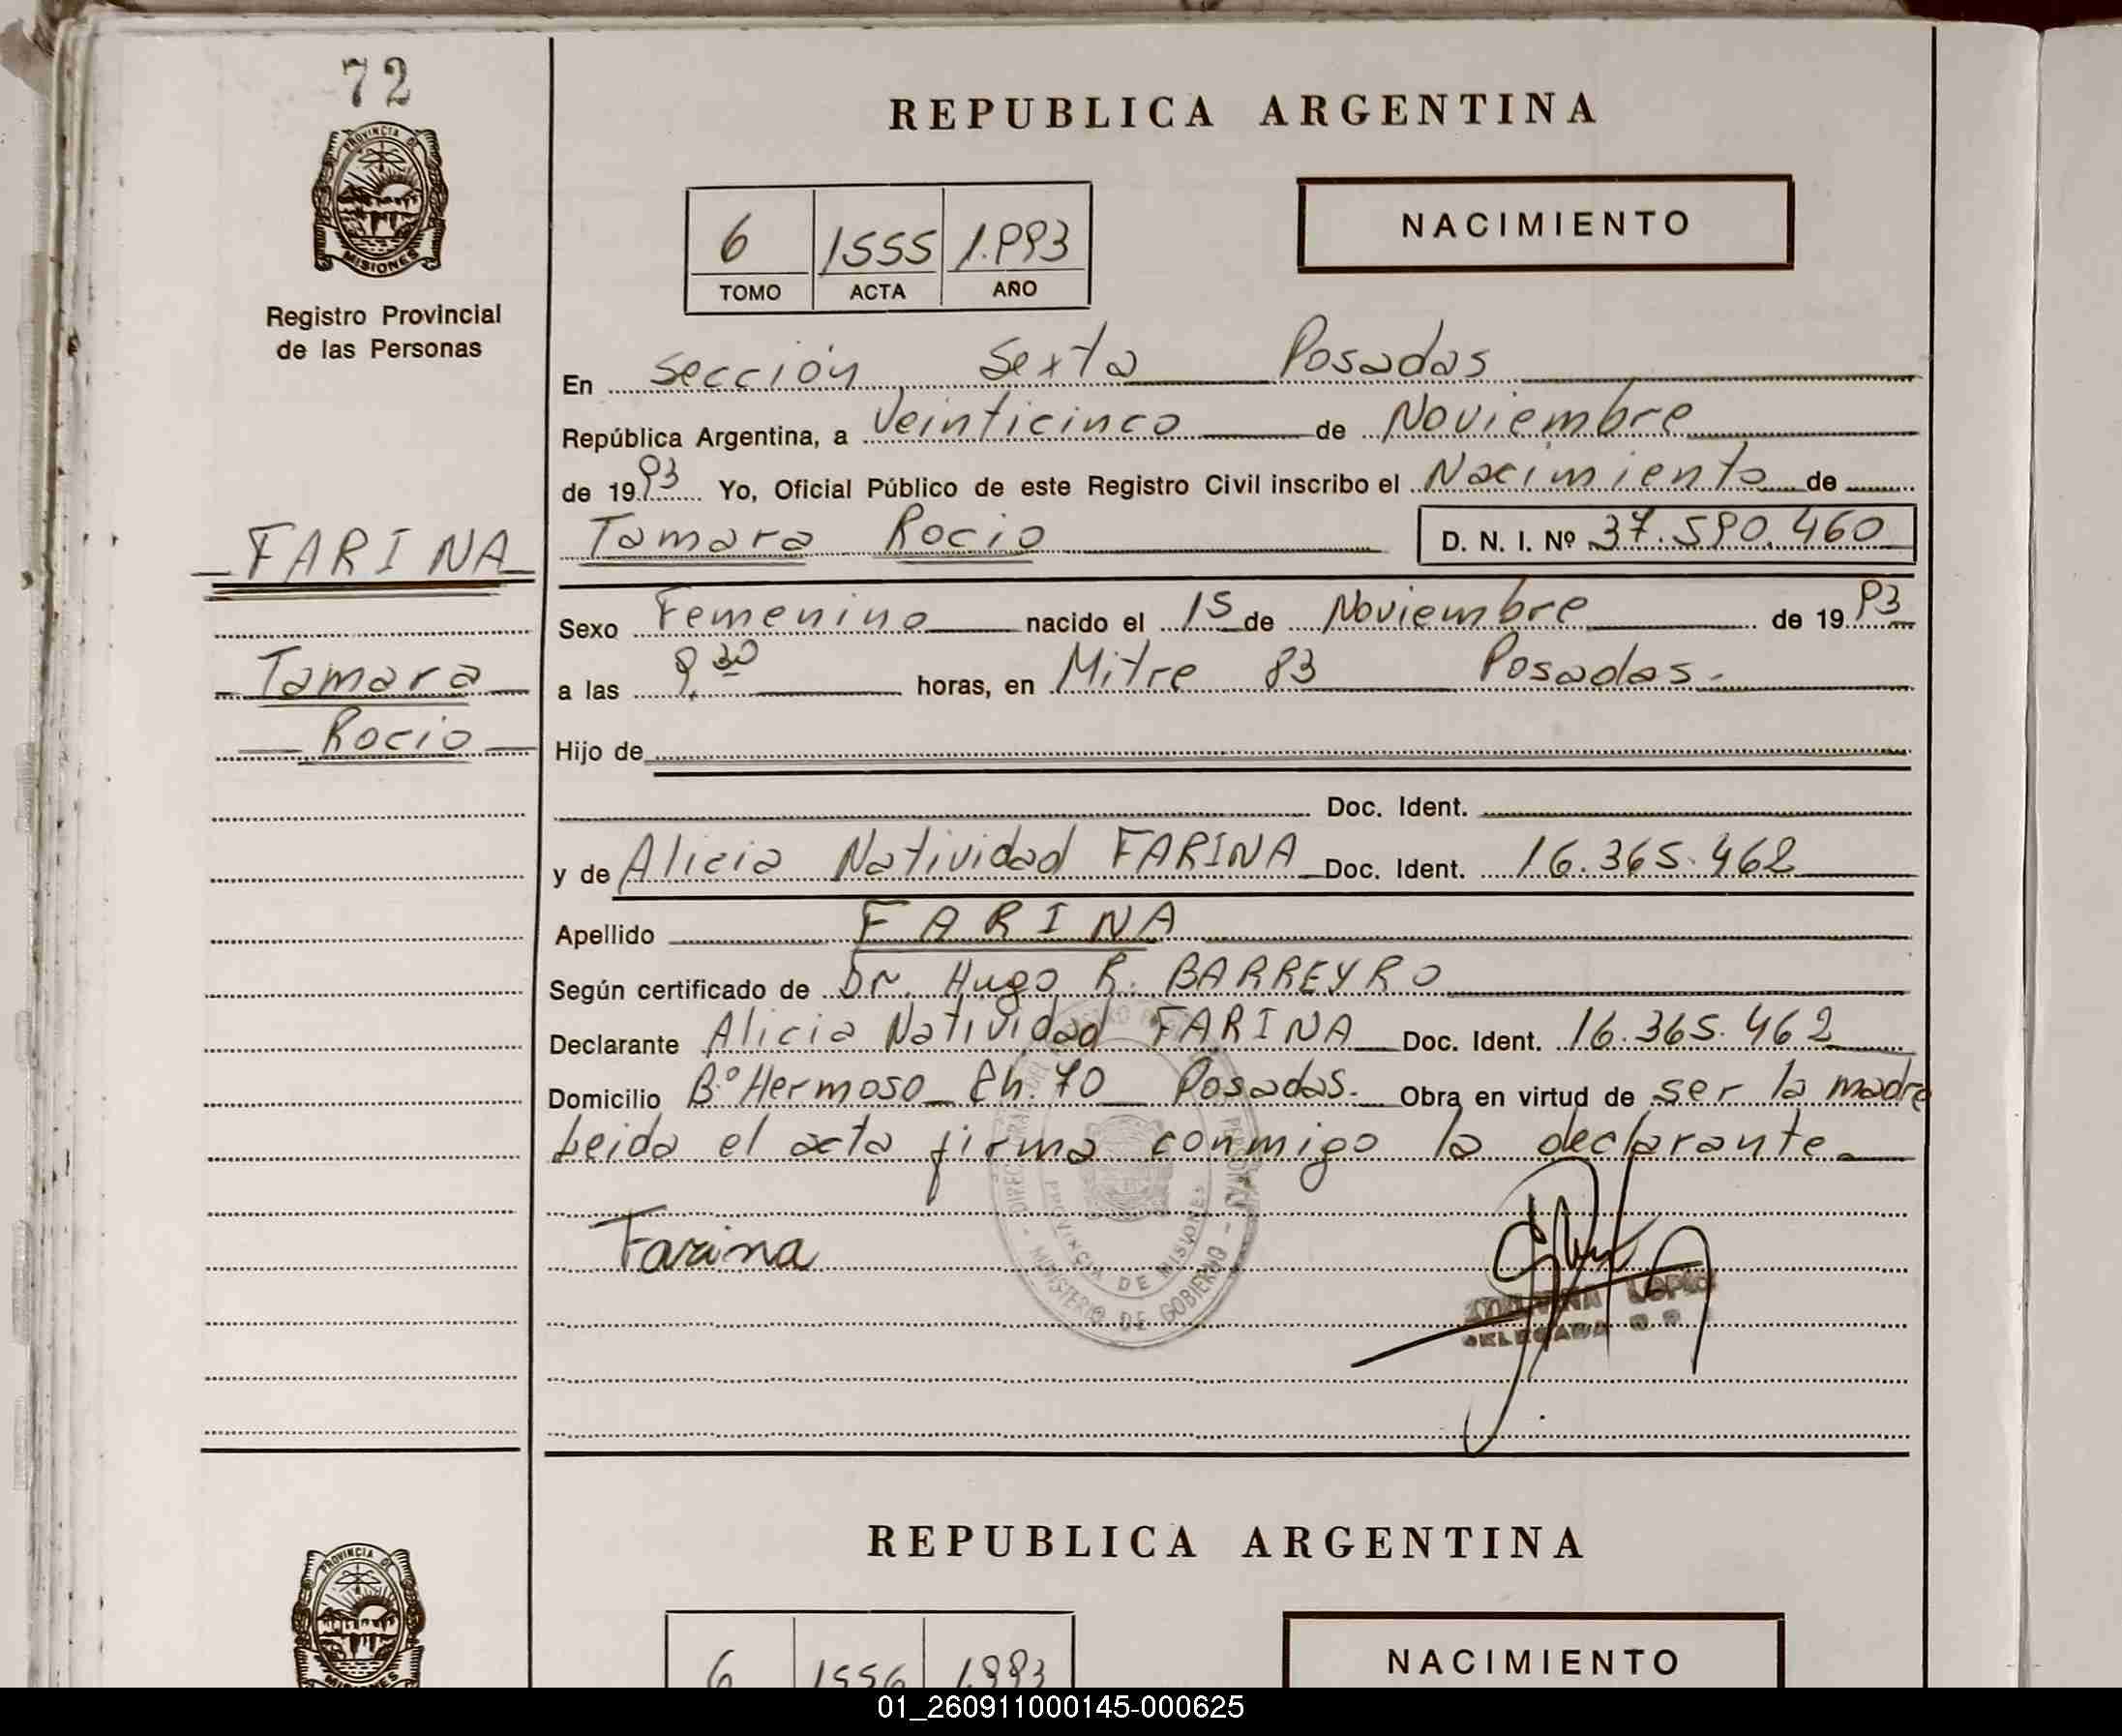 72
PROVINCIA DE
MISIONES
Registro Provincial
de las Personas
REPUBLICA ARGENTINA
6 1555 1.993
TOMO ACTA AÑO
NACIMIENTO
En Sección Sexta Posadas
República Argentina, a Veinticinco de Noviembre
de 1993 Yo, Oficial Público de este Registro Civil inscribo el Nacimiento de
FARINA
Tamara Rocio D. N. I. Nº 37.590.460
Sexo Femenino nacido el 15 de Noviembre de 1993
Tamara
a las 9,30 horas, en Mitre 83 Posadas.
Rocio
Hijo de
Doc. Ident.
y de Alicia Natividad FARINA Doc. Ident. 16.365.462
Apellido FARINA
Según certificado de Dr. Hugo R. BARREYRO
Declarante Alicia Natividad FARINA Doc. Ident. 16.365.462
Domicilio Bº Hermoso Ch. 70 Posadas. Obra en virtud de ser la madre
Leida el acta firma conmigo la declarante.
Farina
PROVINCIA DE MISIONES
MINISTERIO DE GOBIERNO
LOPEZ
DELEGADA
REPUBLICA ARGENTINA
PROVINCIA DE
MISIONES
6 1556 1993
NACIMIENTO
01_260911000145-000625